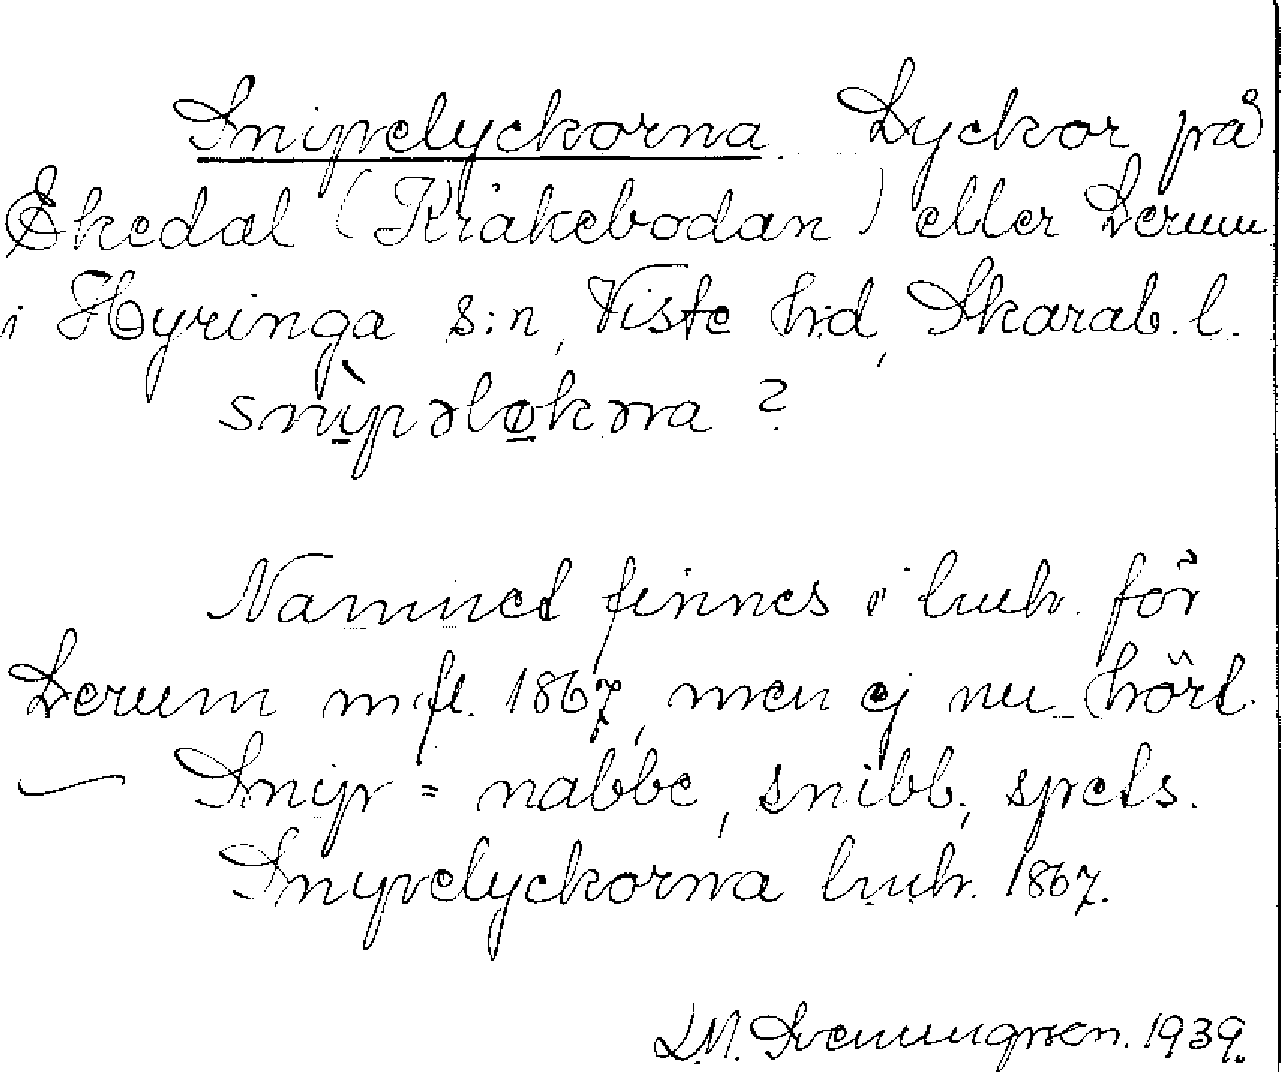 Snipelyckorna. Lyckor på
Ekedal (Kråkebodan) eller Lerum
i Hyringa s:n, Viste hd, Skarab. l.
snìpəløkɔrna ?
Namnet finnes i luh. för
Lerum m.fl. 1867, men ej nu hört.
— Snip = nabbe, snibb, spets.
Snypelyckorna luh. 1867.
L.M. Svenungsson. 1939.